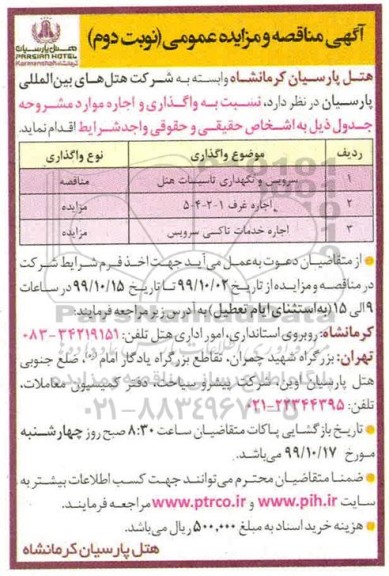 آگهی مناقصه و مزایده عمومی (نوبت دوم)
هتل پارسیان
PARSIAN HOTEL
کرمانشاه Kermanshah
هتل پارسیان کرمانشاه وابسته به شرکت هتل‌های بین‌المللی
پارسیان در نظر دارد، نسبت به واگذاری و اجاره موارد مشروحه
جدول ذیل به اشخاص حقیقی و حقوقی واجد شرایط اقدام نماید.
ردیف موضوع واگذاری نوع واگذاری
۱ سرویس و نگهداری تاسیسات هتل مناقصه
۲ اجاره غرف ۱-۲-۴-۵ مزایده
۳ اجاره خدمات تاکسی سرویس مزایده
از متقاضیان دعوت به عمل می آید جهت اخذ فرم شرایط شرکت
در مناقصه و مزایده از تاریخ ۹۹/۱۰/۰۲ تا تاریخ ۹۹/۱۰/۱۵ در ساعات
۹ الی ۱۵ (به استثنای ایام تعطیل) به آدرس زیر مراجعه فرمایند:
کرمانشاه: روبروی استانداری، امور اداری هتل تلفن: ۳۴۲۱۹۱۵۱-۰۸۳
تهران: بزرگراه شهید چمران، تقاطع بزرگراه یادگار امام (ره)، ضلع جنوبی
هتل پارسیان اوین، شرکت پیشرو سیاحت، دفتر کمیسیون معاملات،
تلفن: ۲۲۳۴۴۳۹۵-۰۲۱
۰۲۱-۸۸۳۴۹۶۷۰-۵
تاریخ بازگشایی پاکات متقاضیان ساعت ۸:۳۰ صبح روز چهارشنبه
مورخ ۹۹/۱۰/۱۷ می‌باشد.
ضمنا متقاضیان محترم می‌توانند جهت کسب اطلاعات بیشتر به
سایت www.pih.ir و www.ptrco.ir مراجعه فرمایند.
هزینه خرید اسناد به مبلغ ۵۰۰,۰۰۰ ریال می‌باشد.
هتل پارسیان کرمانشاه